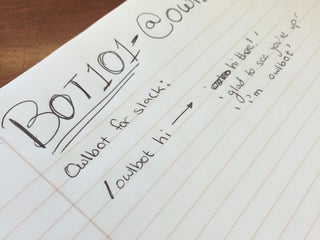 BOT101-@owl
Owlbot for slack:
/owlbot hi →
'hi there!'
'glad to see you're up'
'i'm owlbot'